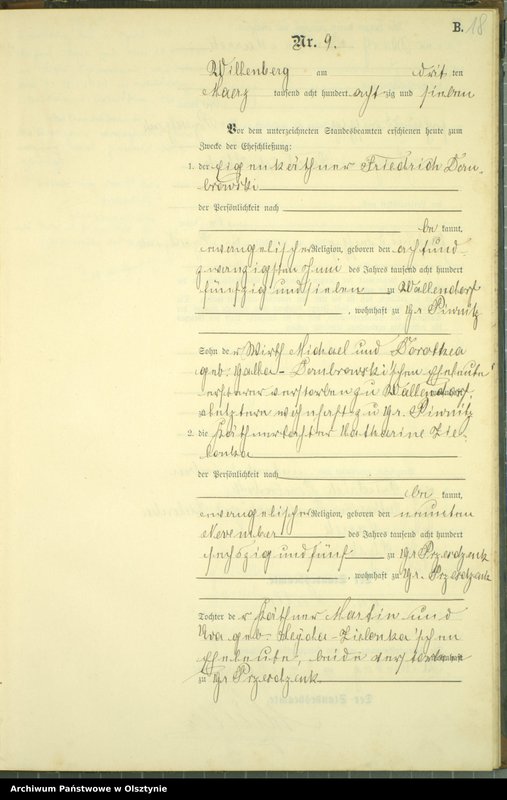 B. 18
Nr. 9.
Willenberg am drit ten
Maerz tausend acht hundert acht zig und sieben
Vor dem unterzeichneten Standesbeamten erschienen heute zum
Zwecke der Eheschließung:
1. der Eigenkäthner Friedrich Dom-
browski
der Persönlichkeit nach
be kannt,
evangelischer Religion, geboren den achtund-
zwanzigsten Juni des Jahres tausend acht hundert
fünfzig und sieben zu Wallendorf
, wohnhaft zu Gr. Piwnitz
Sohn der Wirth Michael und Dorothea
geb: Dombrowski'schen Eheleute
ersterer verstorben zu Wallendorf,
letztere wohnhaft zu Gr. Piwnitz
2. die Käthnertochter Katharine Zie-
lonka
der Persönlichkeit nach
be kannt,
evangelischer Religion, geboren den neunten
November des Jahres tausend acht hundert
sechszig und fünf zu Gr Przerdzenk
, wohnhaft zu Gr. Przerdzenk
Tochter der Käthner Martin und
geb: Zielonka'schen
Eheleute, beide verstorben
zu Gr Przerdzenk
Archiwum Państwowe w Olsztynie